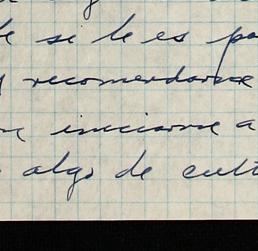 si le es
recomendarme
iniciarme a
algo de cult